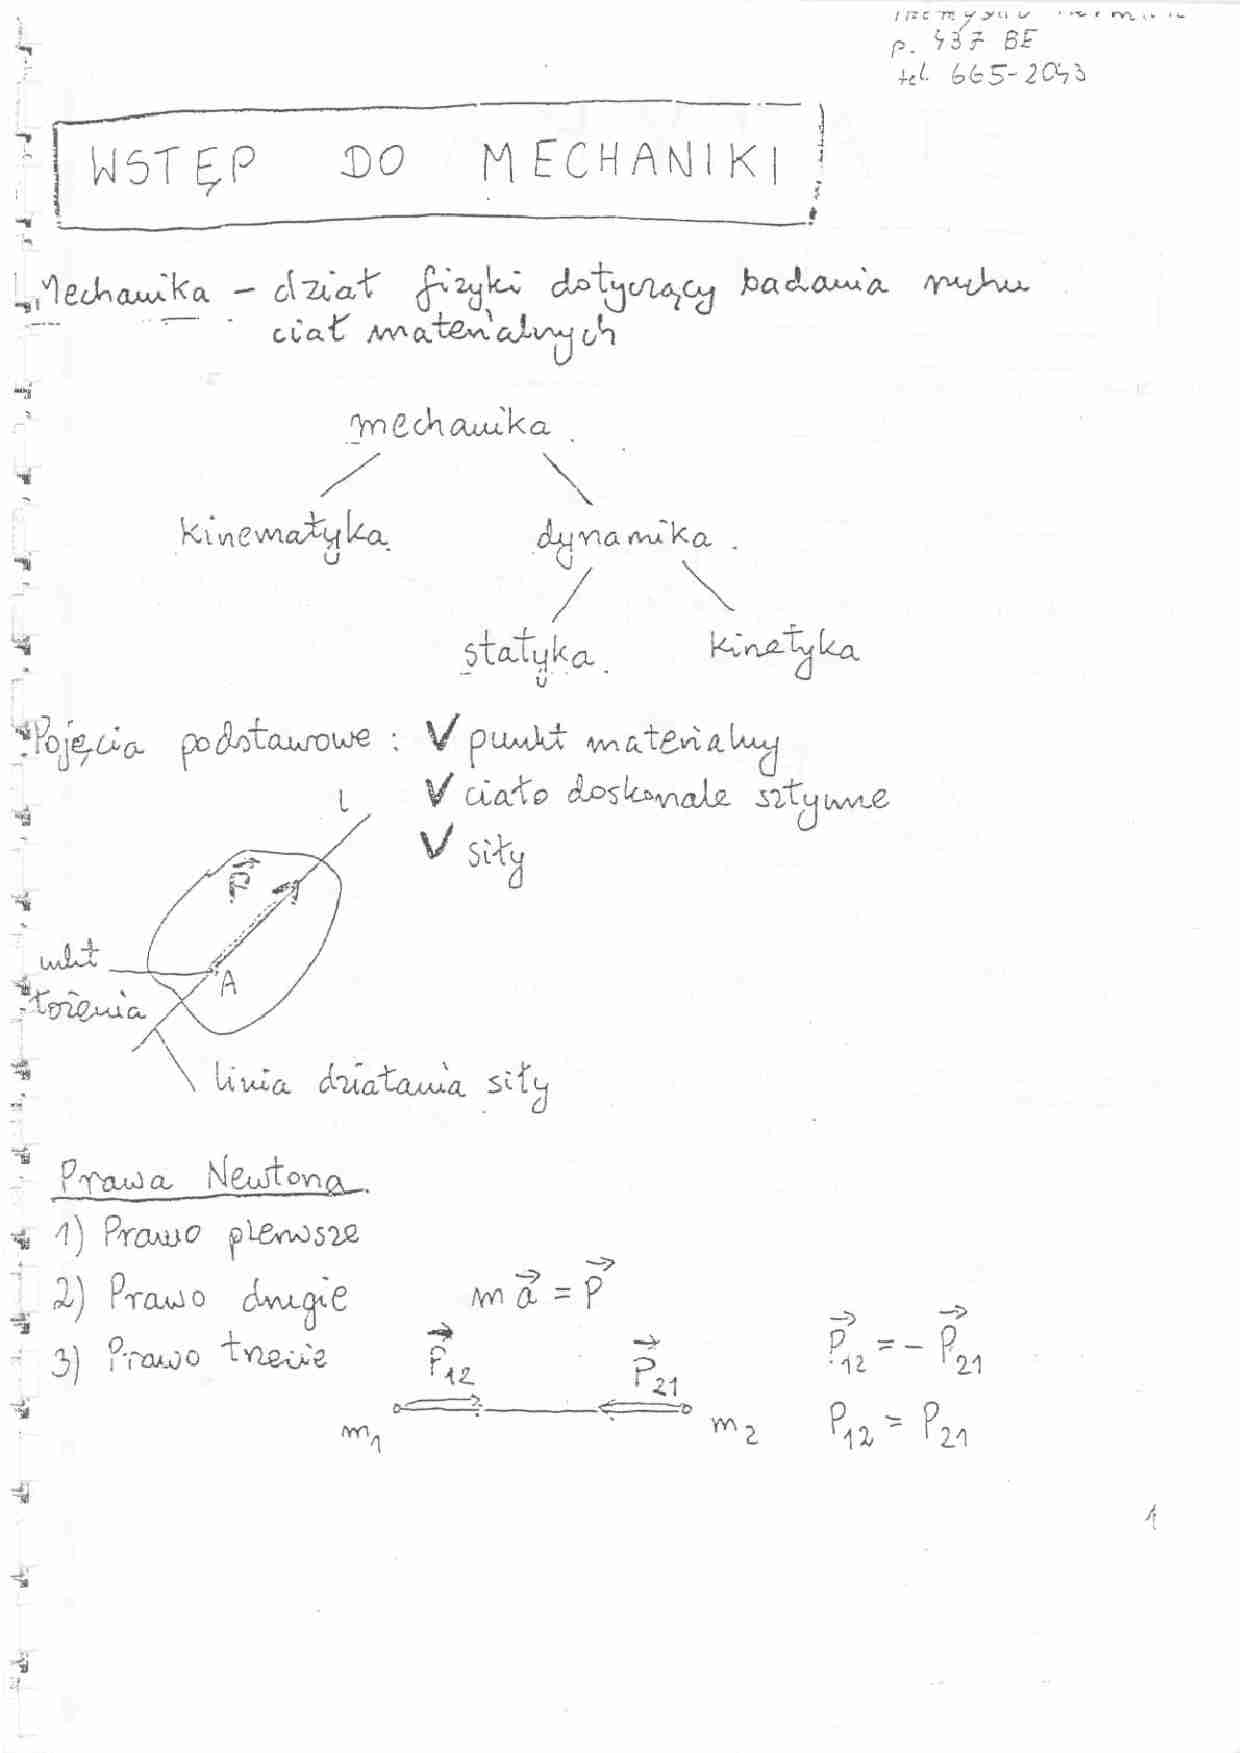 p. 437 BE
tel. 665-2043
WSTĘP DO MECHANIKI
Mechanika - dział fizyki dotyczący badania ruchu
ciał materialnych
mechanika
kinematyka dynamika
statyka kinetyka
Pojęcia podstawowe : V punkt materialny
l V ciało doskonale sztywne
V siły
P
A
łożenia
linia działania siły
Prawa Newtona
1) Prawo pierwsze
2) Prawo drugie m a = P
3) Prawo trzecie P12 P21 P12 = - P21
m1 m2 P12 = P21
1